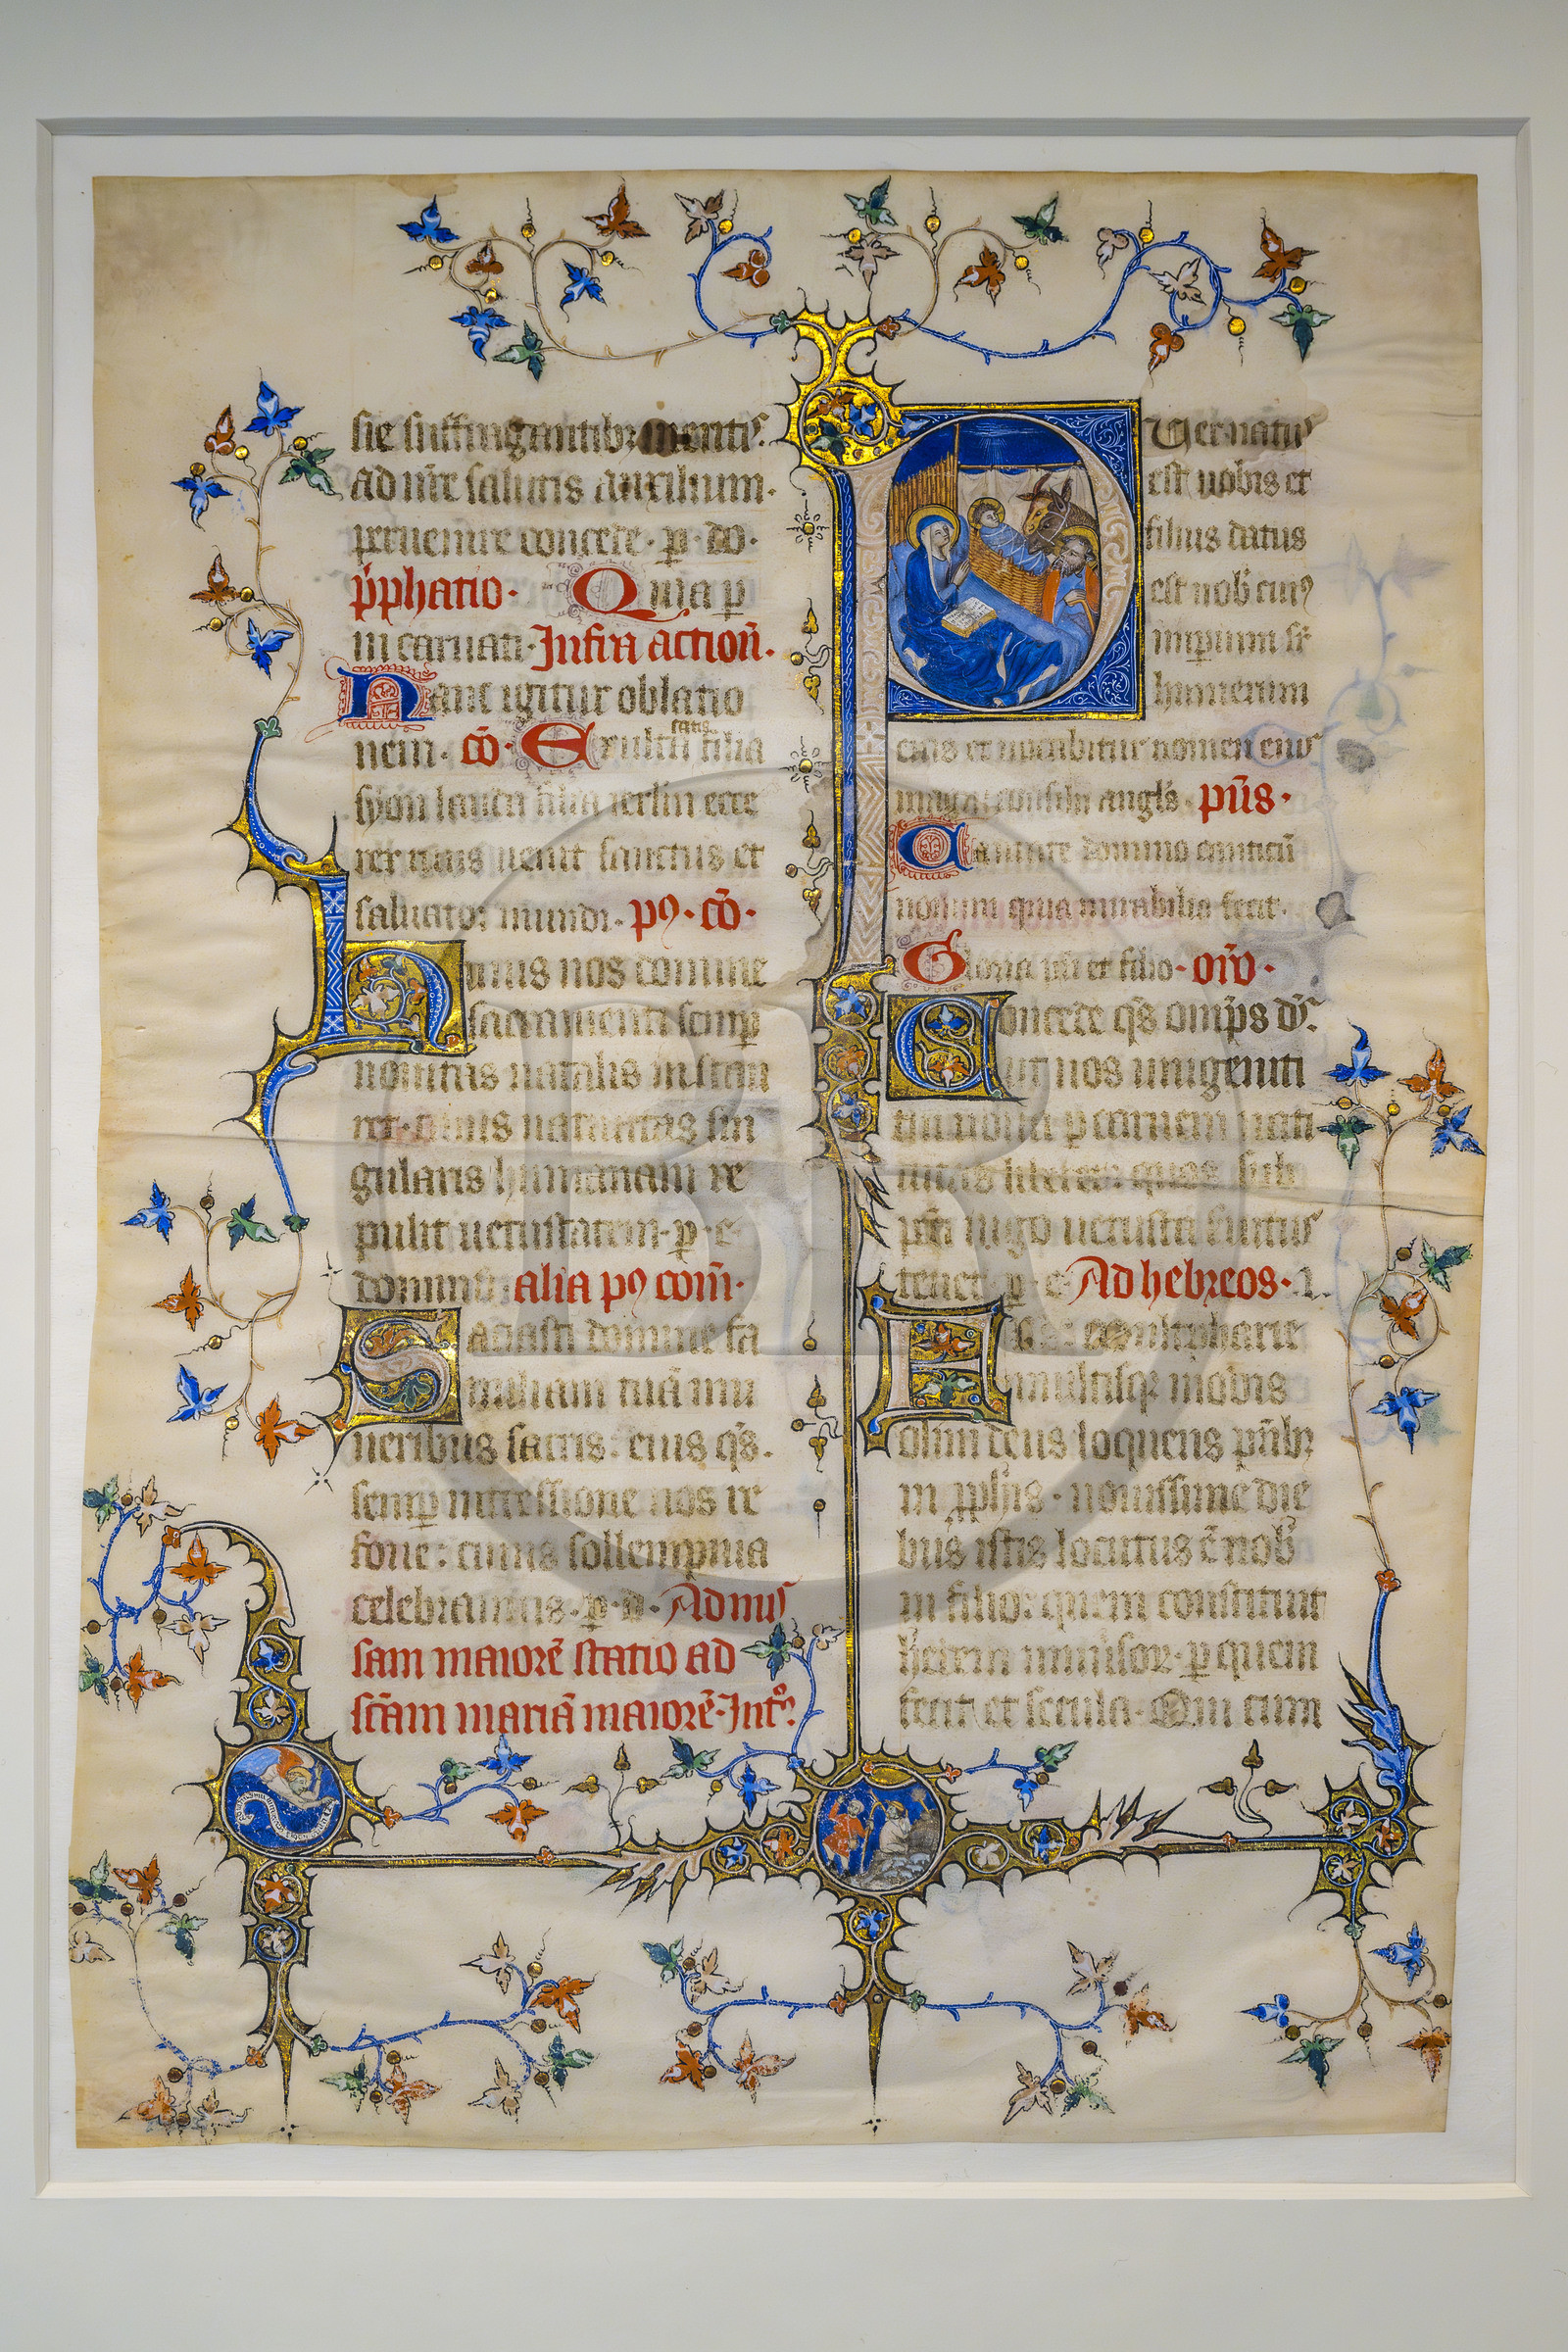 sie suffragantibz meritꝭ.
ad nr̄e salutis auxilium.
peruenire concede. ꝑ. do.
p̄phatio. Quia ꝑ
incarnati. Infra action̄.
Hanc igitur oblatio
nem. cō. Exulta satis filia
syon lauda filia ierl̄m ecce
rex tuus uenit sanctus et
saluator mundi. pꝯ. cō.
Huius nos domine
sacramenti semꝑ
nouitas natalis instau
ret. cuius natiuitas sin
gularis humanam re
pulit uetustatem. ꝑ. e.
dominū. alia pꝯ com̄.
Saciasti domine fa
miliam tuā mu
neribus sacris: eius qs̄.
semꝑ intercessione nos re
foue: cuius sollempnia
celebramus. ꝑ. d. Ad mis
sam maiorē statio ad
sc̄am mariā maiorē. Int̊.
Puer natus
est uobis et
filius datus
est nob̄ cuiꝰ
imperium sr̄
humerum
eius et uocabitur nomen eius
magni consilii angl̄s. pūs.
Cantate domino canticū
nouum quia mirabilia fecit.
Gloria pr̄i et filio. or̄o.
Concede qs̄ omp̄s ds̄.
ut nos unigeniti
tui noua ꝑ carnem nati
uitas liberet: quos sub
pc̄ti iugo uetusta seruitus
tenet. ꝑ. e. Ad hebreos. i.
multisqꝫ modis
olim deus loquens pr̄ibz
in ꝓph̄is. nouissime die
bus istis locutus ē nob̄
in filio: quem constituit
h̄edem uniuersoꝝ. ꝑ quem
fecit et secula. Qui cum